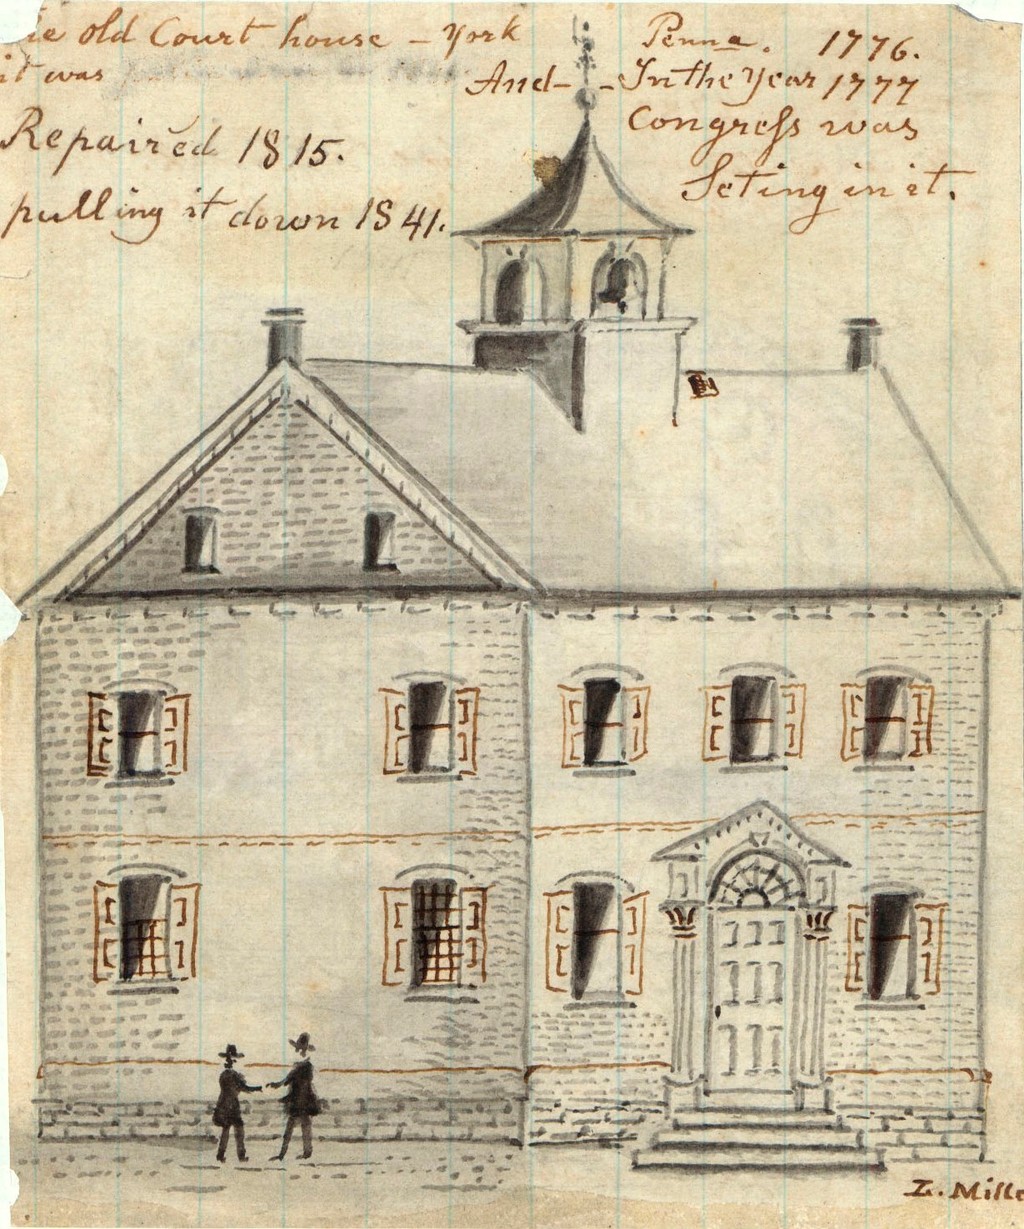 old Court house – York Penna. 1776.
it was
And – – In the Year 1777
Congress was
Seting in it.
Repaired 1815.
pulling it down 1841.
L. Mille